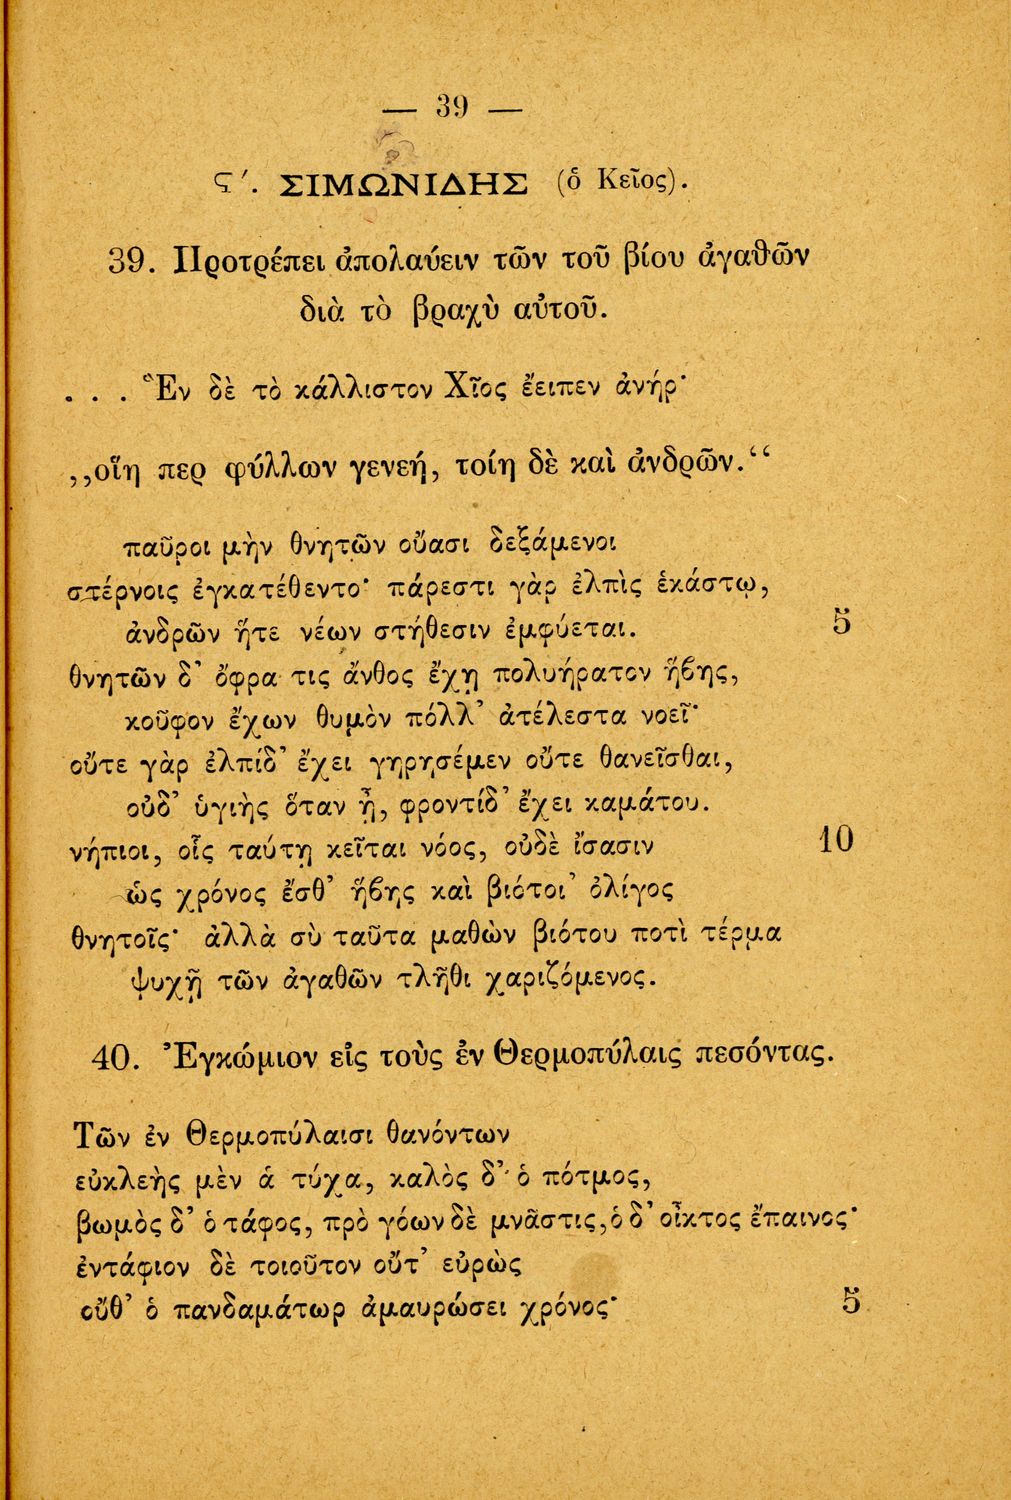 — 39 —
Ϛ΄. ΣΙΜΩΝΙΔΗΣ (ὁ Κεῖος).
39. Προτρέπει ἀπολαύειν τῶν τοῦ βίου ἀγαθῶν
διὰ τὸ βραχὺ αὐτοῦ.
. . . Ἓν δὲ τὸ κάλλιστον Χῖος ἔειπεν ἀνήρ·
„οἵη περ φύλλων γενεή, τοίη δὲ καὶ ἀνδρῶν.“
παῦροι μὴν θνητῶν οὔασι δεξάμενοι
στέρνοις ἐγκατέθεντο· πάρεστι γὰρ ἐλπὶς ἑκάστῳ,
ἀνδρῶν ἥτε νέων στήθεσιν ἐμφύεται. 5
θνητῶν δ’ ὄφρα τις ἄνθος ἔχῃ πολυήρατον ἥβης,
κοῦφον ἔχων θυμὸν πόλλ’ ἀτέλεστα νοεῖ·
οὔτε γὰρ ἐλπίδ’ ἔχει γηρησέμεν οὔτε θανεῖσθαι,
οὐδ’ ὑγιὴς ὅταν ᾖ, φροντίδ’ ἔχει καμάτου.
νήπιοι, οἷς ταύτῃ κεῖται νόος, οὐδὲ ἴσασιν 10
ὡς χρόνος ἔσθ’ ἥβης καὶ βιότοι’ ὀλίγος
θνητοῖς· ἀλλὰ σὺ ταῦτα μαθὼν βιότου ποτὶ τέρμα
ψυχῇ τῶν ἀγαθῶν τλῆθι χαριζόμενος.
40. Ἐγκώμιον εἰς τοὺς ἐν Θερμοπύλαις πεσόντας.
Τῶν ἐν Θερμοπύλαισι θανόντων
εὐκλεὴς μὲν ἁ τύχα, καλὸς δ’ ὁ πότμος,
βωμὸς δ’ ὁ τάφος, πρὸ γόων δὲ μνᾶστις, ὁ δ’ οἶκτος ἔπαινος·
ἐντάφιον δὲ τοιοῦτον οὔτ’ εὐρὼς
οὔθ’ ὁ πανδαμάτωρ ἀμαυρώσει χρόνος· 5